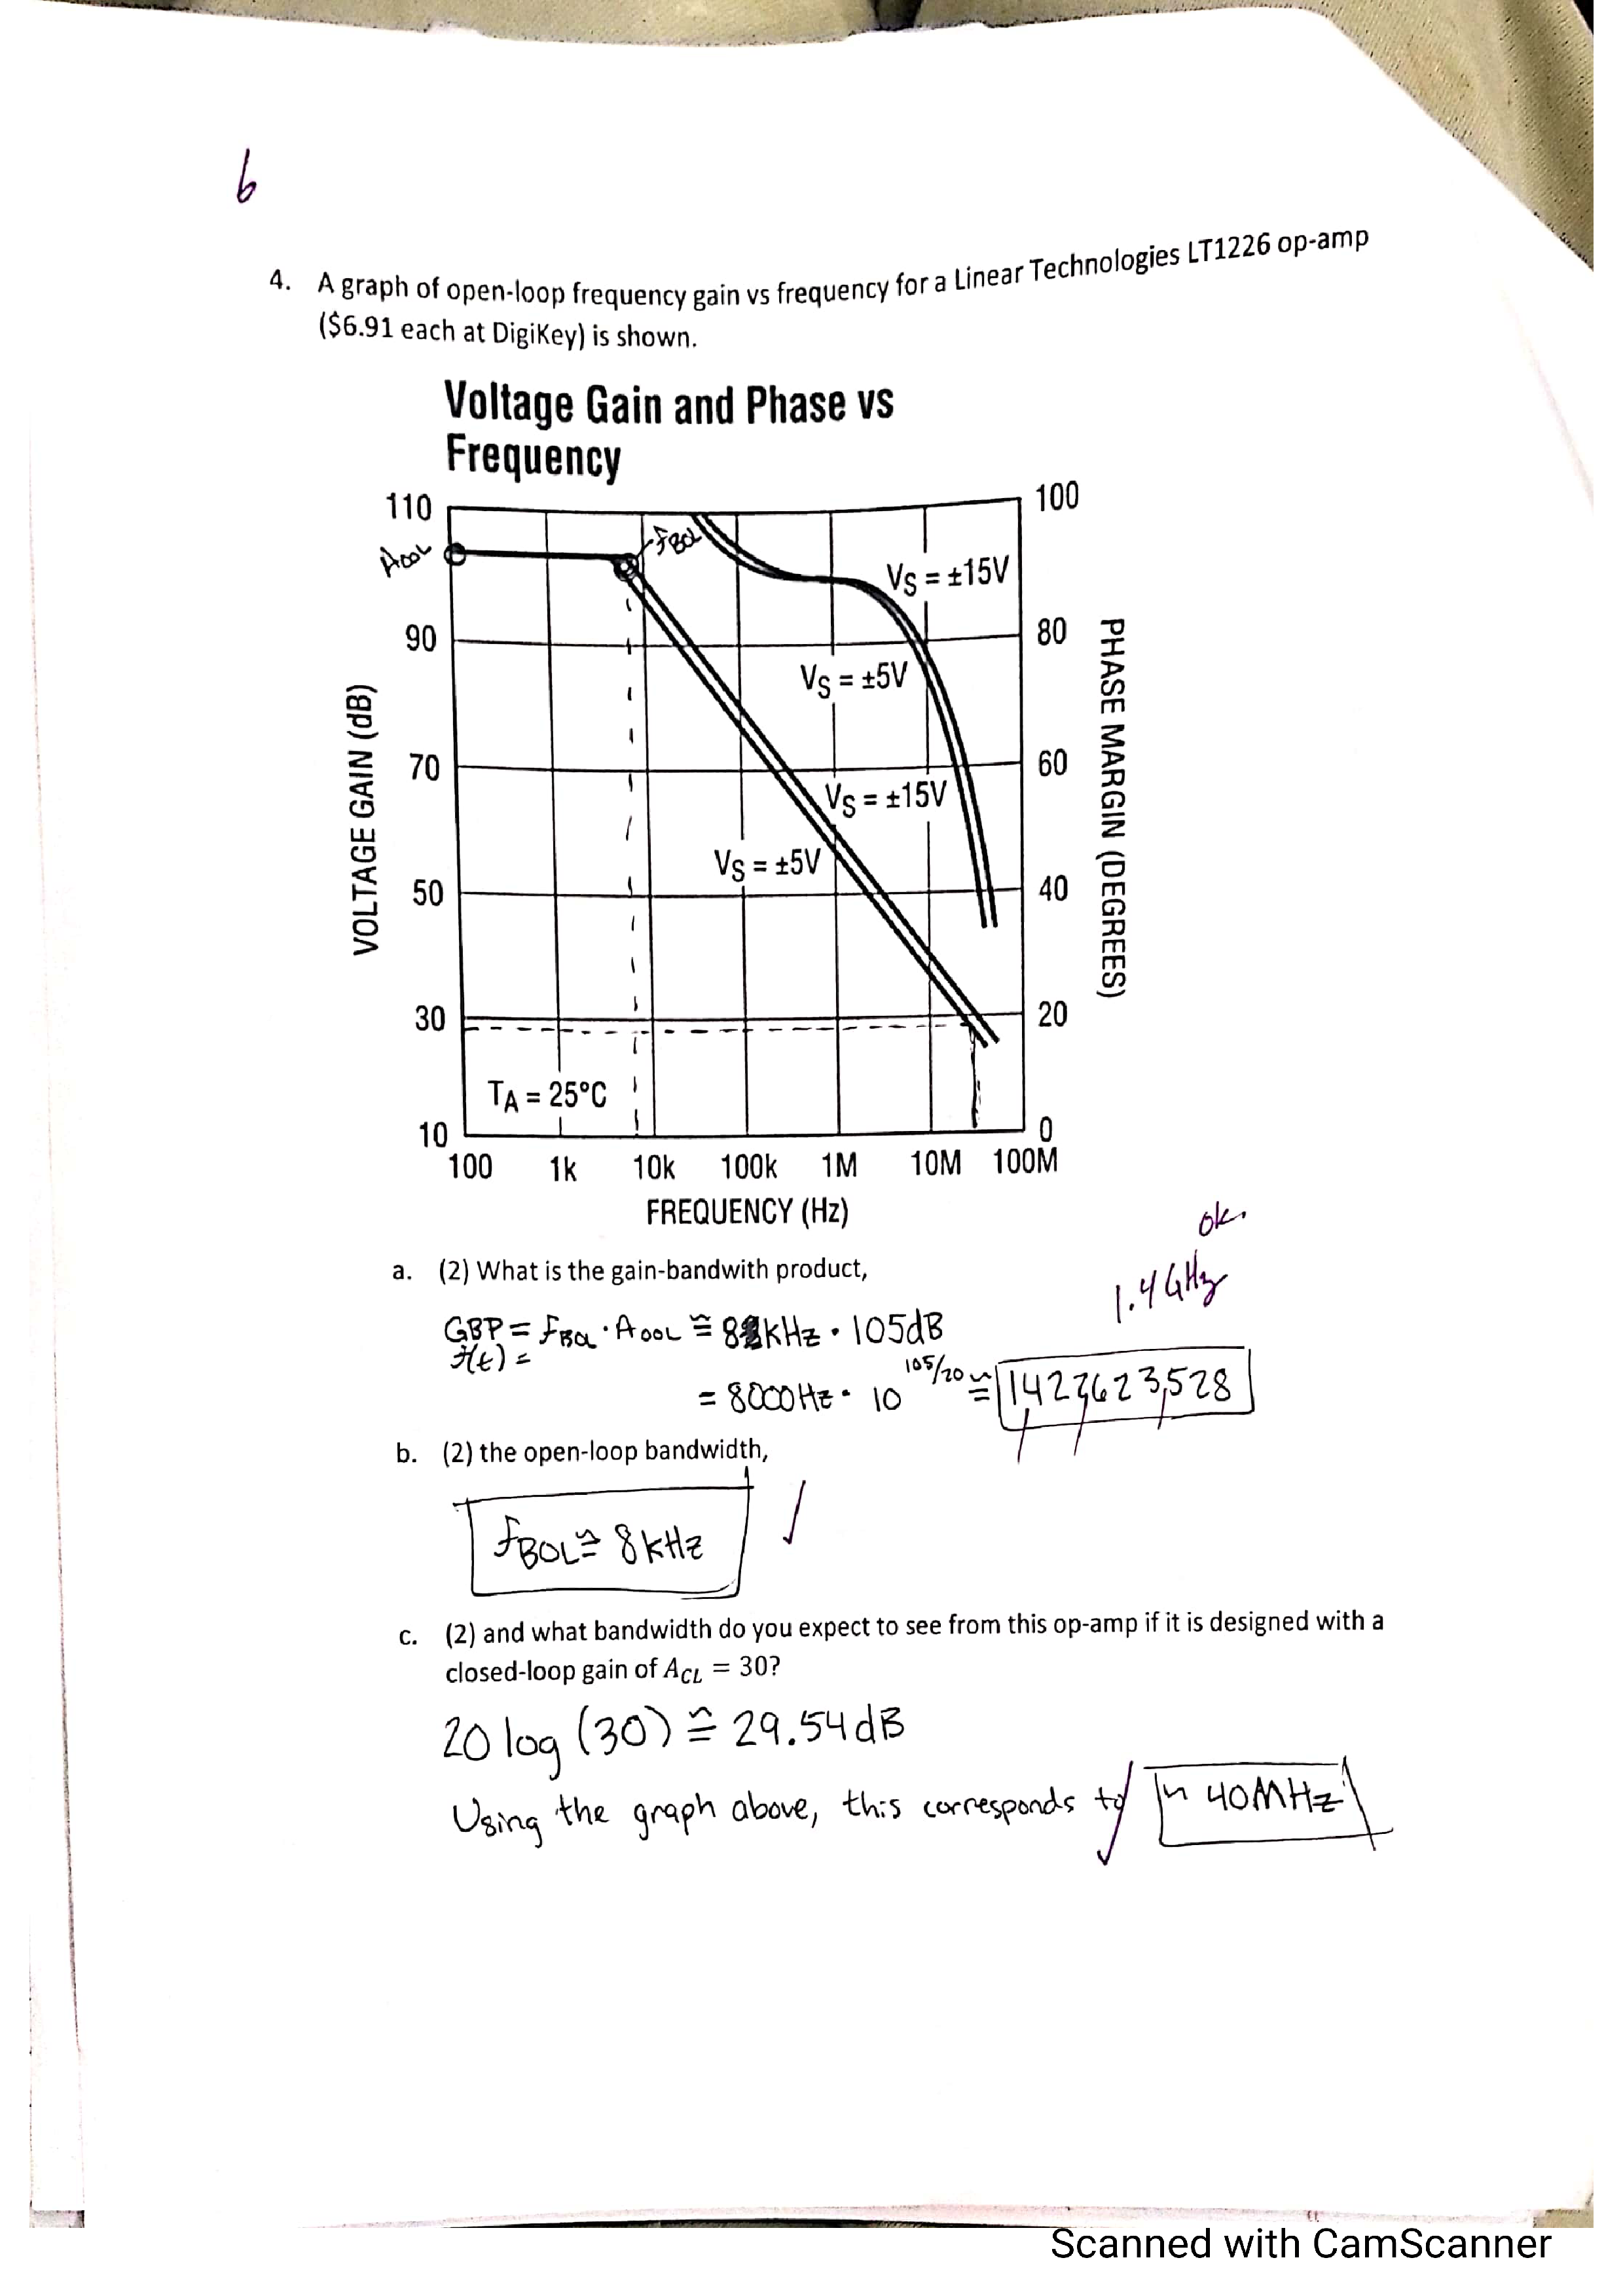 6
4. A graph of open-loop frequency gain vs frequency for a Linear Technologies LT1226 op-amp
($6.91 each at DigiKey) is shown.
Voltage Gain and Phase vs
Frequency
110
100
AOOL
fBOL
VS = ±15V
90
80
VS = ±5V
VOLTAGE GAIN (dB)
PHASE MARGIN (DEGREES)
70
60
VS = ±15V
VS = ±5V
50
40
30
20
TA = 25°C
10
0
100 1k 10k 100k 1M 10M 100M
FREQUENCY (Hz)
ok.
a. (2) What is the gain-bandwith product,
1.4 GHz
GBP = fBOL · AOOL ≅ 8kHz · 105dB
f(t) =
= 8000Hz · 10^105/20 ≅ 1427623,528
b. (2) the open-loop bandwidth,
fBOL ≅ 8kHz ✓
c. (2) and what bandwidth do you expect to see from this op-amp if it is designed with a
closed-loop gain of ACL = 30?
20 log (30) ≅ 29.54dB
Using the graph above, this corresponds to ~ 40MHz
Scanned with CamScanner